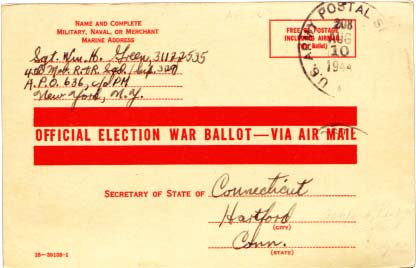 NAME AND COMPLETE
MILITARY, NAVAL, OR MERCHANT
MARINE ADDRESS
Sgt. Wm. H. Green, 31172535
A.P.O. 636, c/o PM
New York, N.Y.
FREE OF POSTAGE
(INCLUDING AIR MAIL
U.S. ARMY POSTAL
208
AUG
10
1944
OFFICIAL ELECTION WAR BALLOT—VIA AIR MAIL
SECRETARY OF STATE OF Connecticut
Hartford
(CITY)
Conn.
(STATE)
16—39138-1